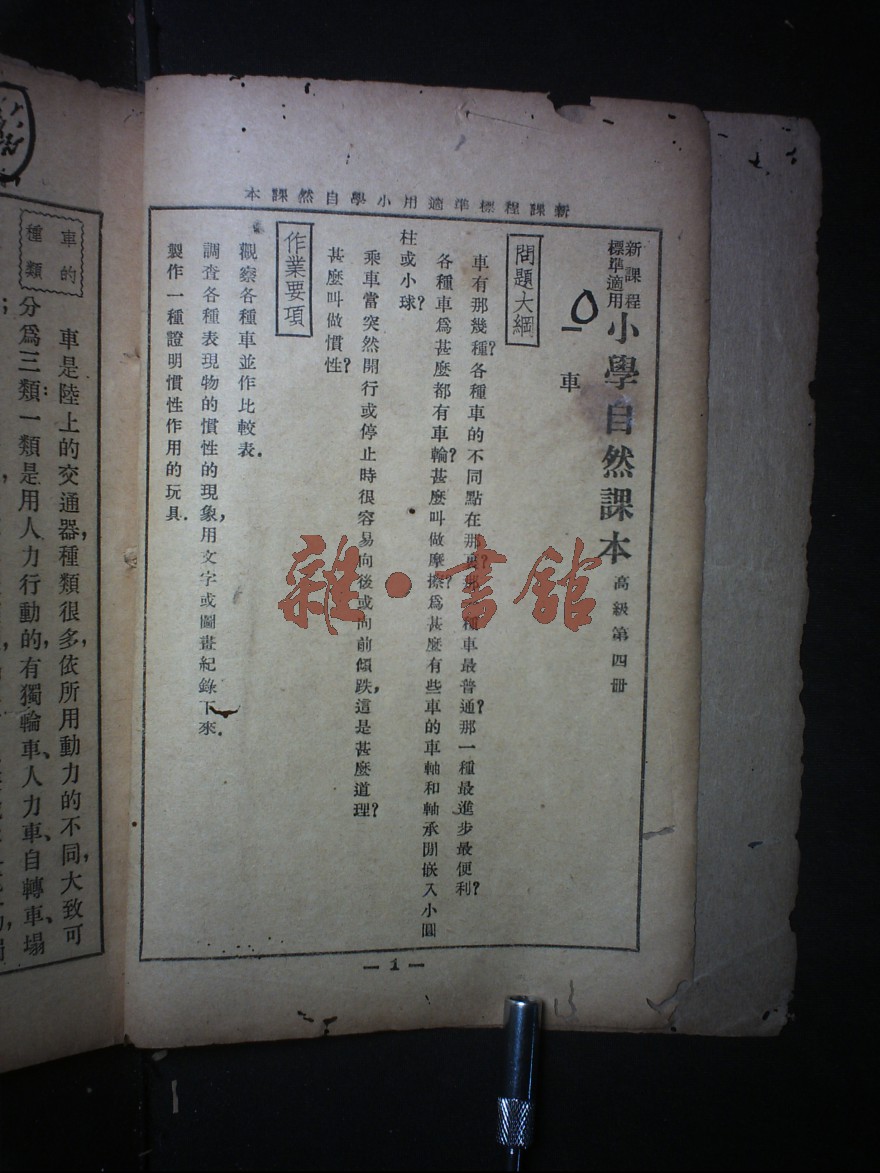 新課程標準適用小學自然課本
新課程
標準適用
小學自然課本
高級第四冊
一 車
問題大綱
車有那幾種?各種車的不同點在那裏?那一種車最普通?那一種最進步最便利?
各種車爲甚麼都有車輪?甚麼叫做摩擦?爲甚麼有些車的車軸和軸承間嵌入小圓
柱或小球?
乘車當突然開行或停止時很容易向後或向前傾跌,這是甚麼道理?
甚麼叫做慣性?
作業要項
觀察各種車並作比較表.
調查各種表現物的慣性的現象,用文字或圖畫紀錄下來.
製作一種證明慣性作用的玩具.
— 1 —
車的
種類
車是陸上的交通器,種類很多,依所用動力的不同,大致可
分爲三類:一類是用人力行動的,有獨輪車、人力車、自轉車、塌
雜·書館